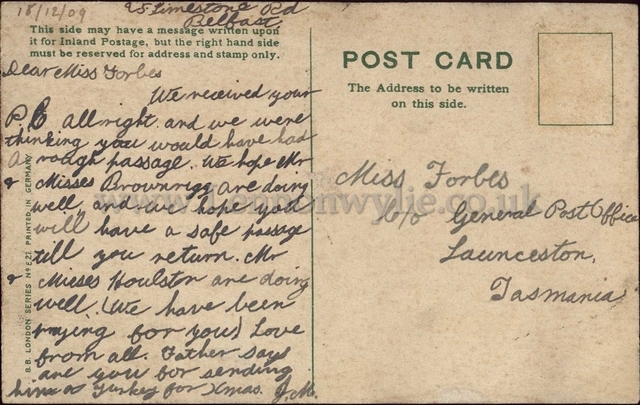 18/12/09
25 Limestone Rd
Belfast
This side may have a message written upon
it for Inland Postage, but the right hand side
must be reserved for address and stamp only.
Dear Miss Forbes
We received your
P.C all right and we were
thinking you would have had
a rough passage. We hope Mr
& Misses Brownrigg are doing
well, and we hope you
will have a safe passage
till you return. Mr
& Misses Houlston are doing
well. (We have been
praying for you) Love
from all. Father says
are you for sending
him a Turkey for Xmas. J. Mc.
B.B. LONDON SERIES No E21 PRINTED IN GERMANY
POST CARD
The Address to be written
on this side.
Miss Forbes
c/o General Post Office
Launceston,
Tasmania